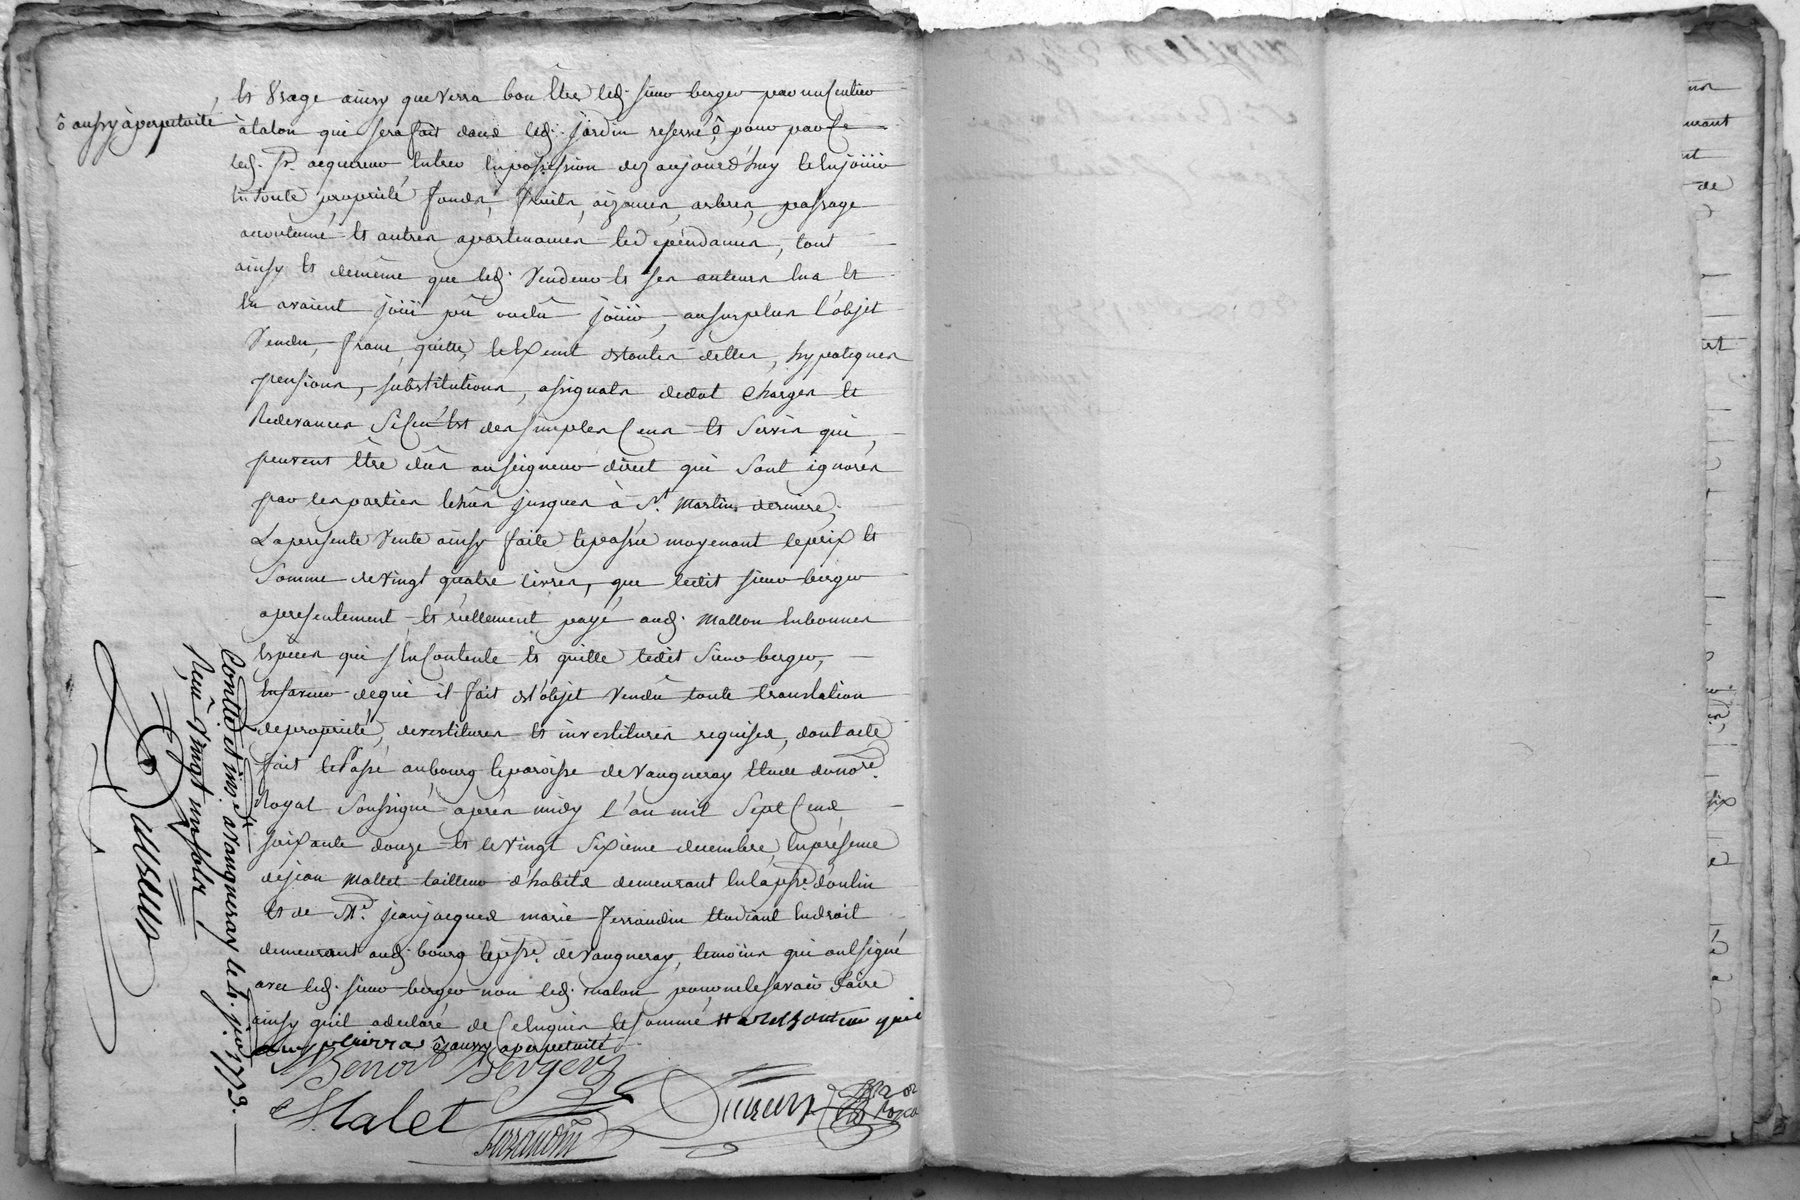 ô aussy à perpetuité
Et Usage ainsy que verra bon Etre led. sieur berger par un sentier
à talon qui sera fait dans led. jardin reservé ô, pour par ce
led. Sr. acquereur Entrer En possession dez aujourd'huy et En joüir
En toute proprieté fonds, fruits, aizances, arbres, passage
accoutumé et autres apartenances et dépéndances, tout
ainsy et de même que led. Vendeur et ses auteurs En a et
En avaient joüi pû ou dû joüir, au surplus l'objet
Vendu, franc, quitte, et Exemt de toutes dettes, hypoteques
pensions, substitutions, assignats de dot charges et
Redevances Si Ce n'Est des simples Cens et Servis qui
peuvent être dûs au seigneur direct qui Sont ignorés
par les parties Echûs jusques à St. Martin derniere.
La presente Vente ainsy faite et passée moyenant le prix et
Somme de vingt quatre livres, que ledit sieur berger
a presentement et réellement payé aud. Mallon En bonnes
Espèces qui s'En Contente et quitte ledit Sieur berger,
En faveur de qui il fait de l'objet Vendû toute translation
de proprieté, devestitures et investitures requises, dont acte
fait et Passé au bourg et paroisse de Vaugneray Etude du nore.
Royal Soussigné après midy l'an mil Sept Cent
soixante douze et le vingt Sixieme decembre, En présence
de jean Mallet tailleur d'habits demeurant En la psse. d'oulin
et de Me. jean jacques marie ferrandin Etudiant En droit
demeurant aud. bourg et psse. de Vaugneray, temoins qui ont signé
avec led. sieur berger non led. malon pour ne le savoir faire
ainsy qu'il a déclaré de Ce Enquis et sommé
ô aussy a perpetuité
Benoit Berger
Malet
ferrandin
Contlé et ins. a Vaugneray le 4. jer. 1773.
Reçu Vingt un sols